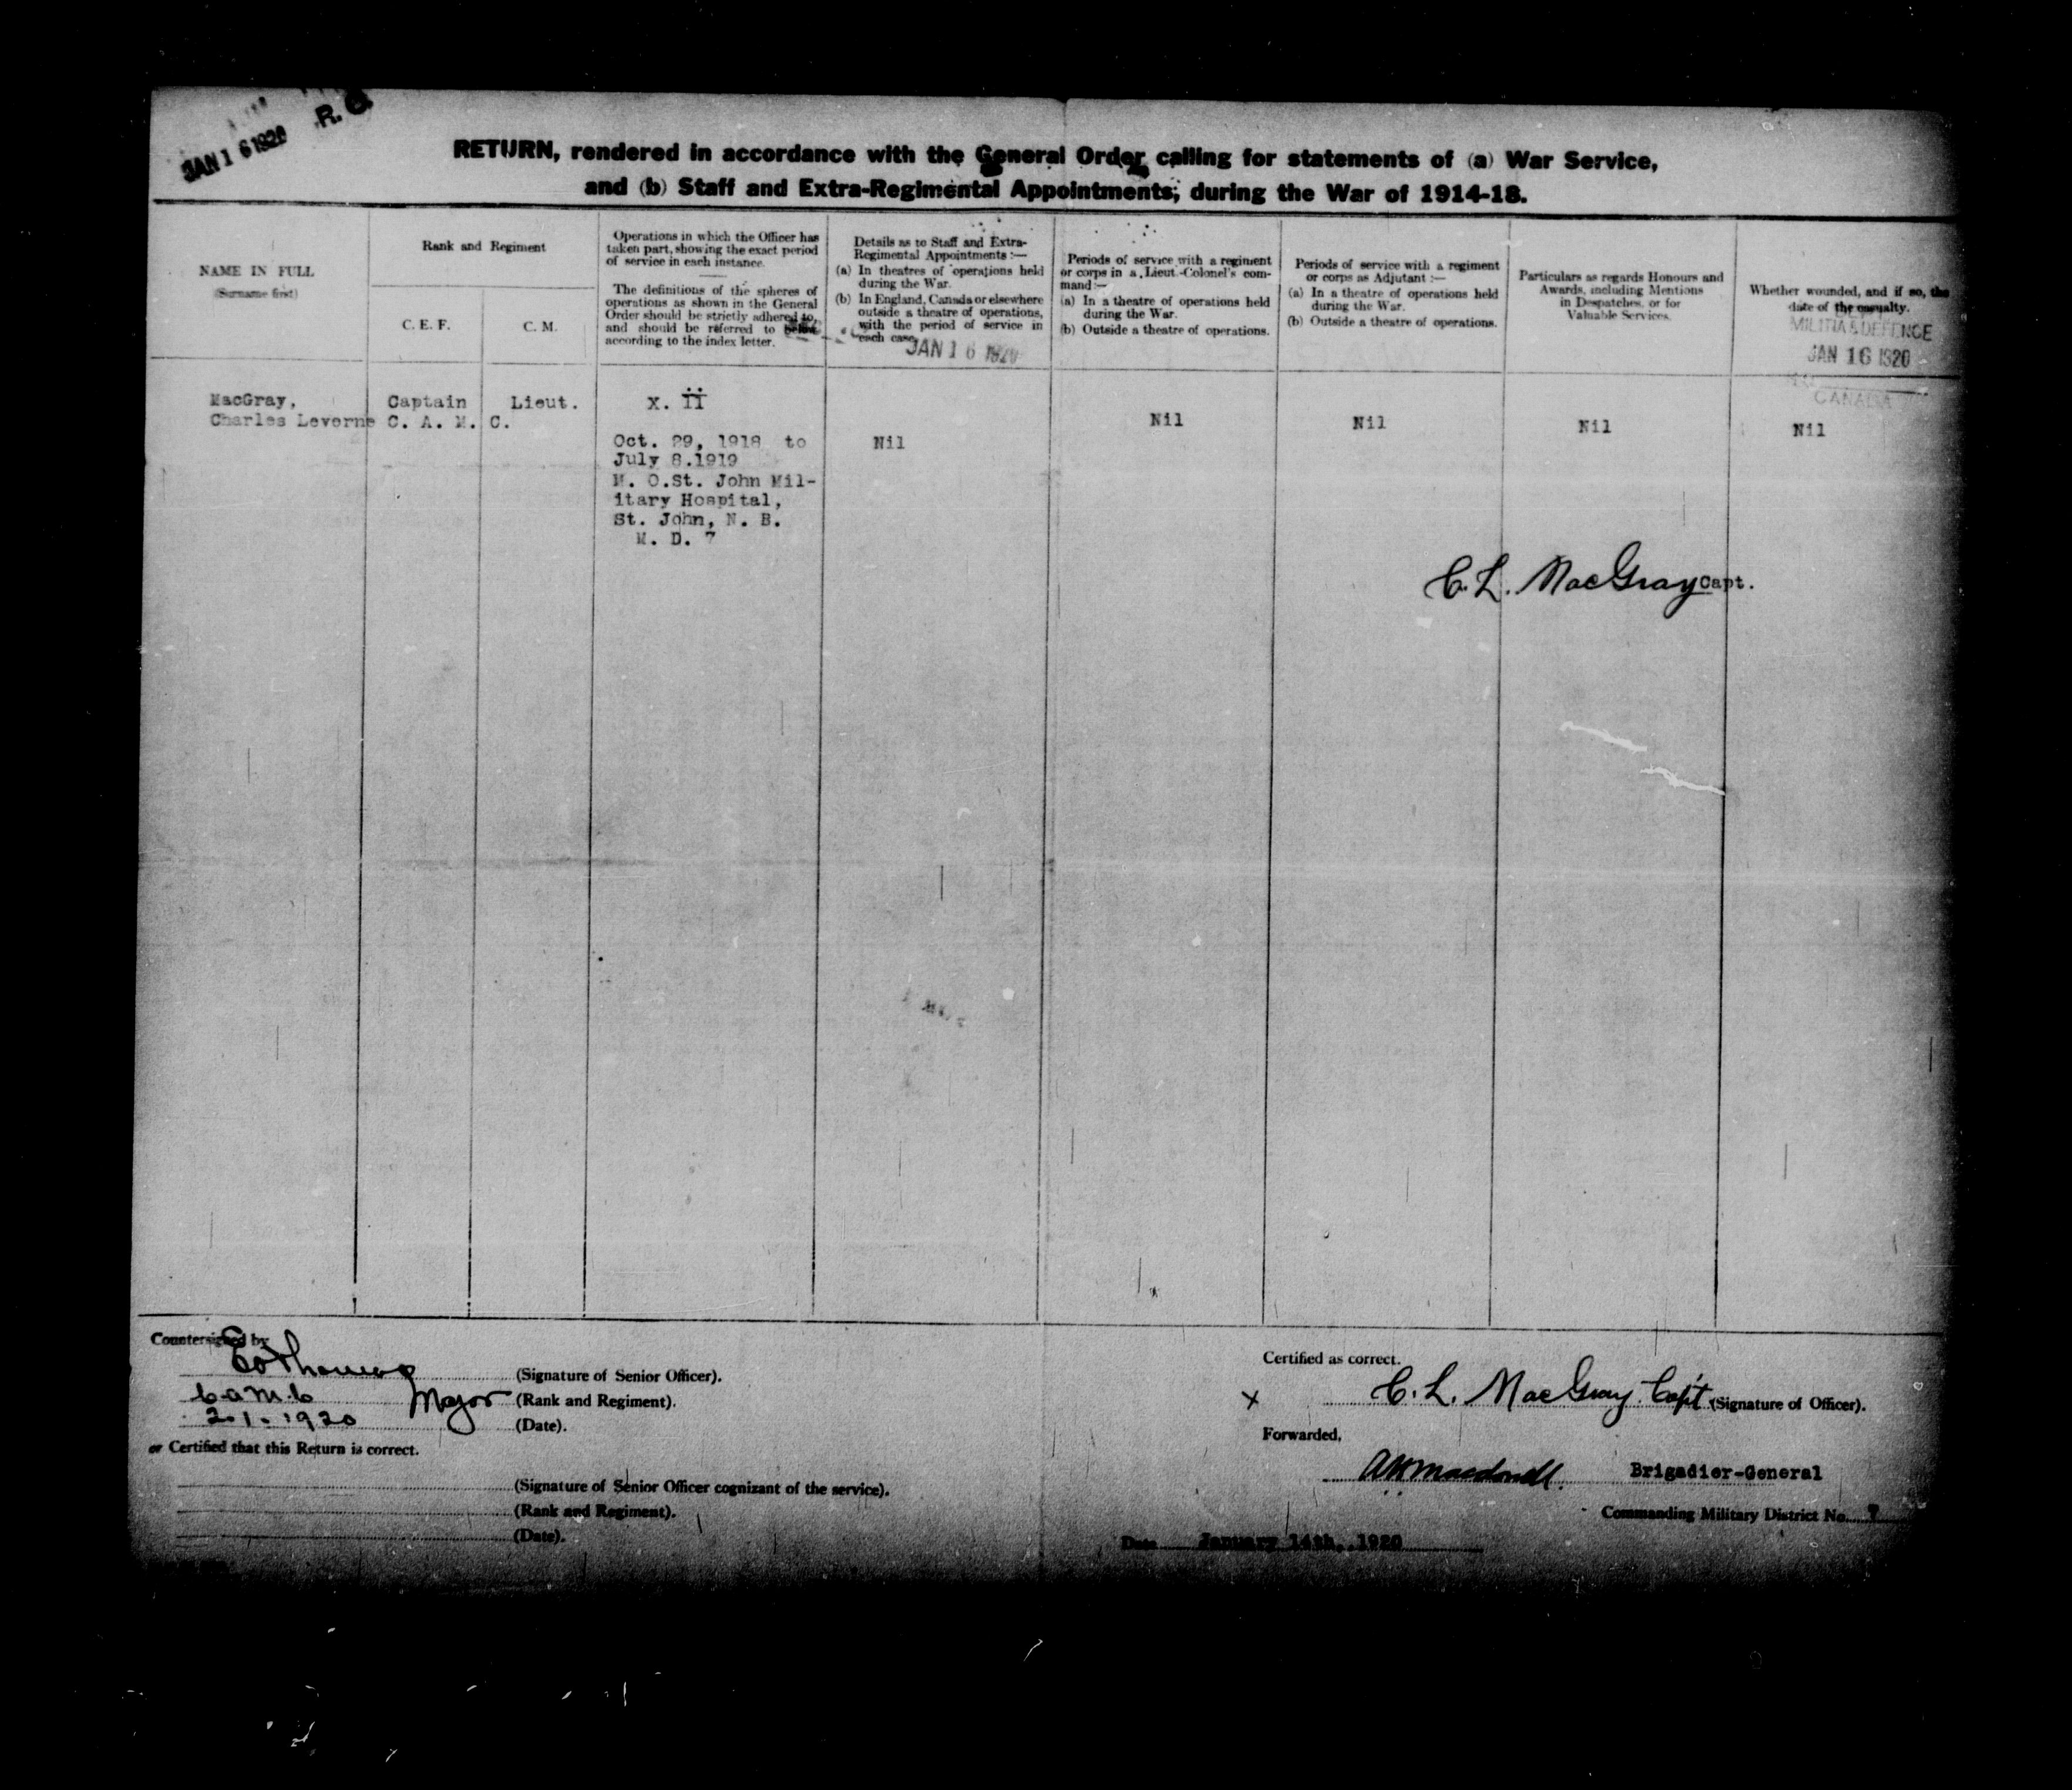 JAN 16 1920
R. O.
RETURN, rendered in accordance with the General Order calling for statements of (a) War Service,
and (b) Staff and Extra-Regimental Appointments, during the War of 1914-18.
NAME IN FULL
(Surname first)
Rank and Regiment
C. E. F.
C. M.
Operations in which the Officer has
taken part, showing the exact period
of service in each instance.
The definitions of the spheres of
operations as shown in the General
Order should be strictly adhered to,
and should be referred to below
according to the index letter.
Details as to Staff and Extra-
Regimental Appointments :—
(a) In theatres of operations held
during the War.
(b) In England, Canada or elsewhere
outside a theatre of operations,
with the period of service in
each case.
JAN 16 1920
Periods of service with a regiment
or corps in a Lieut.-Colonel's com-
mand:—
(a) In a theatre of operations held
during the War.
(b) Outside a theatre of operations.
Periods of service with a regiment
or corps as Adjutant :—
(a) In a theatre of operations held
during the War.
(b) Outside a theatre of operations.
Particulars as regards Honours and
Awards, including Mentions
in Despatches, or for
Valuable Services.
Whether wounded, and if so, the
date of the casualty.
MILITIA & DEFENCE
JAN 16 1920
CANADA
MacGray,
Charles Leverne
Captain
Lieut.
C. A. M. C.
X. II
Oct. 29, 1918 to
July 8.1919
M. O.St. John Mil-
itary Hospital,
St. John, N. B.
M. D. 7
Nil
Nil
Nil
Nil
Nil
C. L. MacGray Capt.
Countersigned by
(Signature of Senior Officer).
C A M C Major (Rank and Regiment).
2.1.1920 (Date).
or Certified that this Return is correct.
(Signature of Senior Officer cognizant of the service).
(Rank and Regiment).
(Date).
Certified as correct.
X C. L. MacGray Capt. (Signature of Officer).
Forwarded,
A H Macdonell Brigadier-General
Commanding Military District No. 7
Date January 14th, 1920